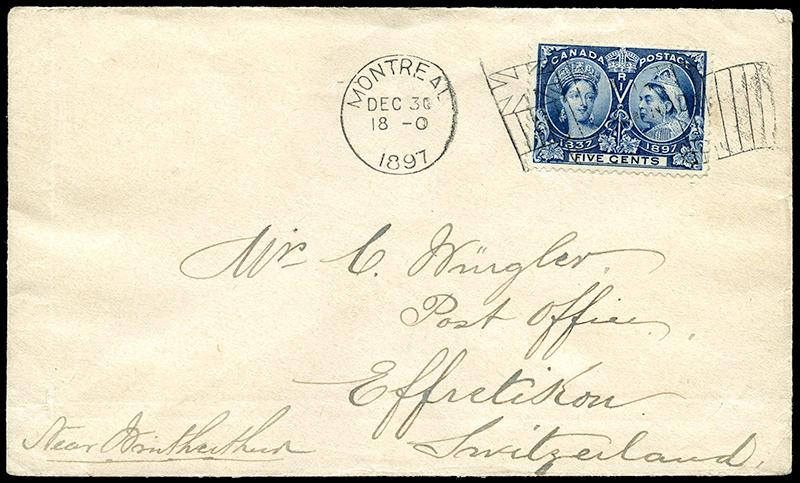 MONTREAL
DEC 30
18 - 0
1897
CANADA POSTAGE
V R
1837 1897
FIVE CENTS
Mr. C. Würgler
Post Office
Effretikon
Switzerland
Near Wintherthur